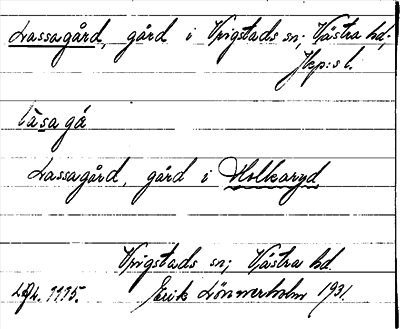 Lassagård, gård i Vrigstads sn; Västra hd;
Jkp:s l.
lasagá
Lassagård, gård i Holkaryd
Vrigstads sn; Västra hd.
Erik Lönnerholm 1931.